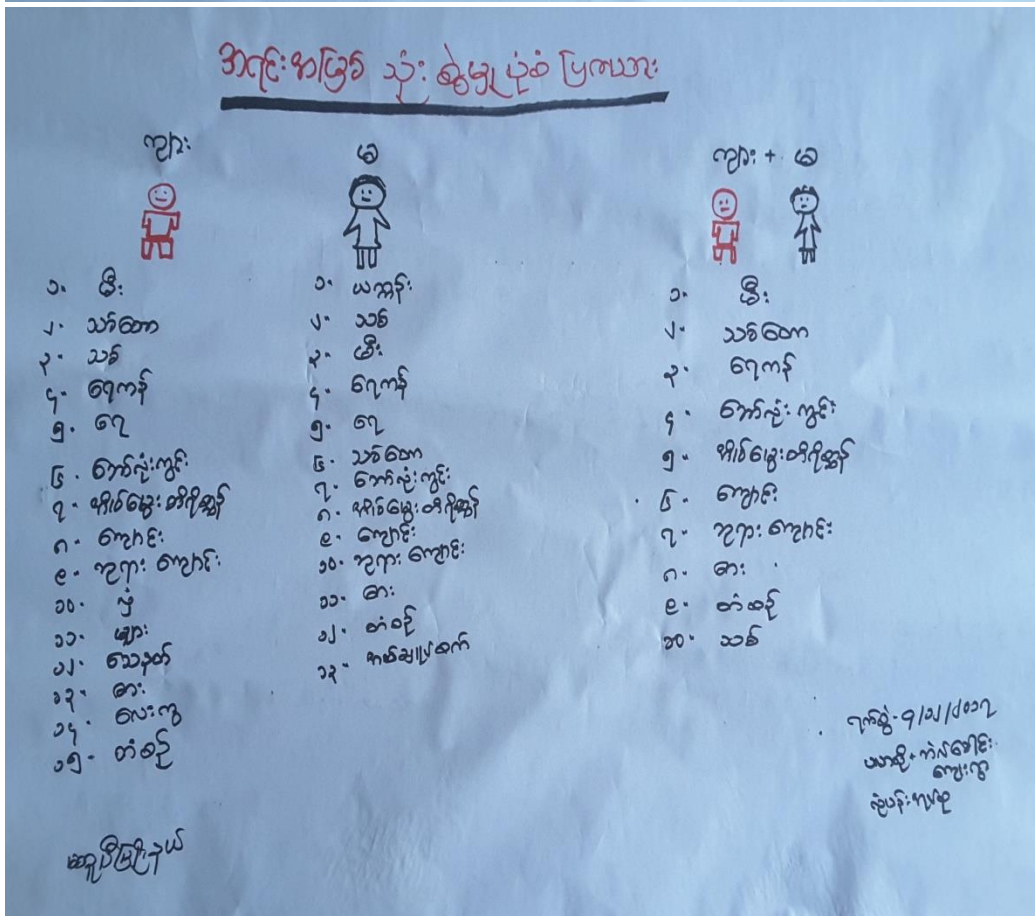 အရင်းအမြစ် သုံးစွဲမှု ပုံစံ ပြကားချပ်
ကျား
မ
ကျား + မ
၁။ မီး
၂။ သစ်တော
၃။ သစ်
၄။ ရေကန်
၅။ ရေ
၆။ ဘော်လုံးကွင်း
၇။ အိမ်မွေးတိရိစ္ဆာန်
၈။ ကျောင်း
၉။ ဘုရားကျောင်း
၁၀။ လှံ
၁၁။ များ
၁၂။ သေနတ်
၁၃။ ဓား
၁၄။ လေးကွ
၁၅။ တံစဉ်
၁။ ယက္ကန်း
၂။ သစ်
၃။ မီး
၄။ ရေကန်
၅။ ရေ
၆။ သစ်တော
၇။ ဘော်လုံးကွင်း
၈။ အိမ်မွေးတိရိစ္ဆာန်
၉။ ကျောင်း
၁၀။ ဘုရားကျောင်း
၁၁။ ဓား
၁၂။ တံစဉ်
၁၃။ အပ်ချုပ်စက်
၁။ မီး
၂။ သစ်တော
၃။ ရေကန်
၄။ ဘော်လုံးကွင်း
၅။ အိမ်မွေးတိရိစ္ဆာန်
၆။ ကျောင်း
၇။ ဘုရားကျောင်း
၈။ ဓား
၉။ တံစဉ်
၁၀။ သစ်
ရက်စွဲ -
ကျေးရွာ
မြို့နယ်